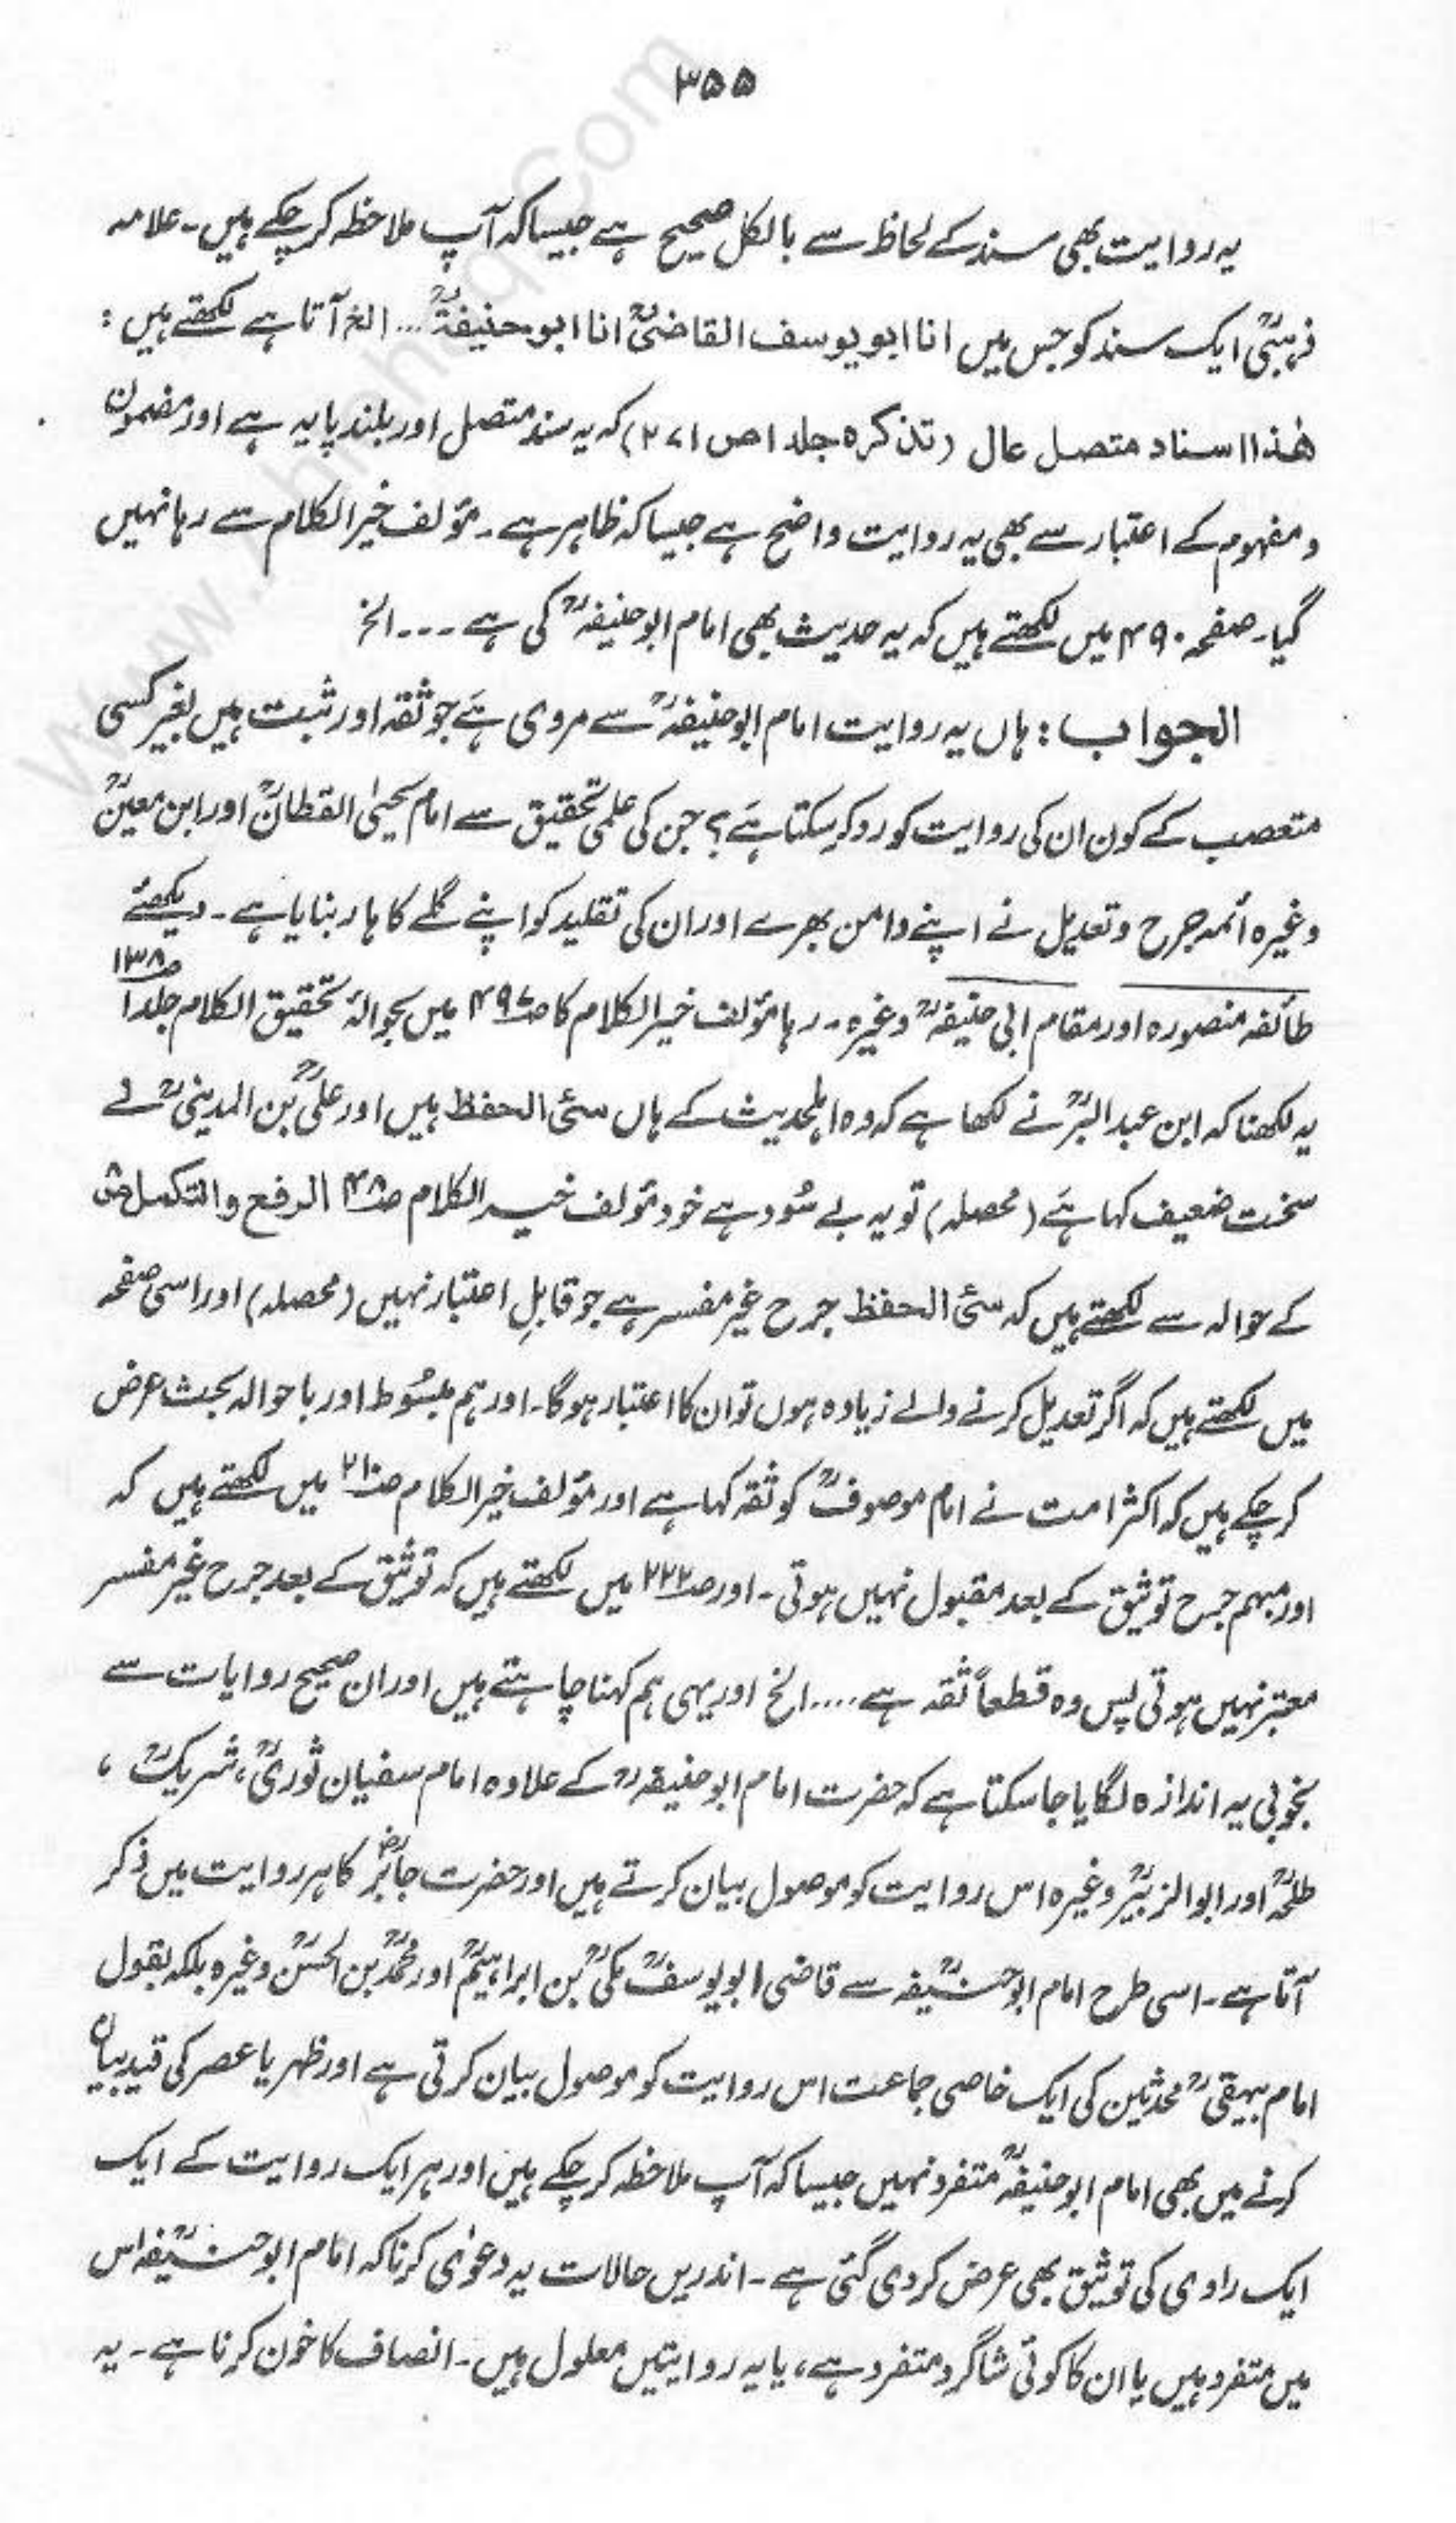 ۳۵۵
یہ روایت بھی سند کے لحاظ سے بالکل صحیح ہے جیسا کہ آپ ملاحظہ کر چکے ہیں۔ علامہ
ذہبیؒ ایک سند کو جس میں انا ابو یوسف القاضیؒ انا ابو حنیفۃؒ ... الخ آتا ہے لکھتے ہیں :
ھٰذا اسناد متصل عال (تذکرہ جلد ۱ ص ۲۷۱) کہ یہ سند متصل اور بلند پایہ ہے اور مضمون
و مفہوم کے اعتبار سے بھی یہ روایت واضح ہے جیسا کہ ظاہر ہے۔ مؤلف خیر الکلام سے رہا نہیں
گیا۔ صفحہ ۴۹۰ میں لکھتے ہیں کہ یہ حدیث بھی امام ابو حنیفہؒ کی ہے ۔۔۔ الخ
الجواب : ہاں یہ روایت امام ابو حنیفہؒ سے مروی ہے جو ثقہ اور ثبت ہیں بغیر کسی
متعصب کے کون ان کی روایت کو رد کر سکتا ہے؟ جن کی علمی تحقیق سے امام یحییٰ القطانؒ اور ابن معینؒ
وغیرہ ائمہ جرح و تعدیل نے اپنے دامن بھرے اور ان کی تقلید کو اپنے گلے کا ہار بنایا ہے۔ دیکھئے
طائفہ منصورہ اور مقام ابی حنیفہؒ وغیرہ۔ رہا مؤلف خیر الکلام کا ص۴۹۷ میں بحوالہ تحقیق الکلام جلد ۱ ص۱۳۸
یہ لکھنا کہ ابن عبد البرؒ نے لکھا ہے کہ وہ اہلحدیث کے ہاں سئ الحفظ ہیں اور علیؒ بن المدینیؒ نے
سخت ضعیف کہا ہے (محصلہ) تو یہ بے سُود ہے خود مؤلف خیر الکلام ص۴۸ الرفع والتکمیل
کے حوالہ سے لکھتے ہیں کہ سئ الحفظ جرح غیر مفسر ہے جو قابلِ اعتبار نہیں (محصلہ) اور اسی صفحہ
میں لکھتے ہیں کہ اگر تعدیل کرنے والے زیادہ ہوں تو ان کا اعتبار ہوگا۔ اور ہم مبسُوط اور باحوالہ بحث عرض
کر چکے ہیں کہ اکثر امت نے امام موصوفؒ کو ثقہ کہا ہے اور مؤلف خیر الکلام ص۲۱۰ میں لکھتے ہیں کہ
اور مبہم جرح توثیق کے بعد مقبول نہیں ہوتی۔ اور ص۲۲۲ میں لکھتے ہیں کہ توثیق کے بعد جرح غیر مفسر
معتبر نہیں ہوتی پس وہ قطعاً ثقہ ہے .... الخ اور یہی ہم کہنا چاہتے ہیں اور ان صحیح روایات سے
بخوبی یہ اندازہ لگایا جا سکتا ہے کہ حضرت امام ابو حنیفہؒ کے علاوہ امام سفیان ثوریؒ، شریکؒ ،
طلحہؒ اور ابو الزبیرؒ وغیرہ اس روایت کو موصول بیان کرتے ہیں اور حضرت جابرؓ کا ہر روایت میں ذکر
آتا ہے۔ اسی طرح امام ابو حنیفہؒ سے قاضی ابو یوسفؒ مکیؒ بن ابراہیمؒ اور محمدؒ بن الحسنؒ وغیرہ بلکہ بقول
امام بیہقیؒ محدثین کی ایک خاصی جماعت اس روایت کو موصول بیان کرتی ہے اور ظہر یا عصر کی قید بیان
کرنے میں بھی امام ابو حنیفہؒ متفرد نہیں جیسا کہ آپ ملاحظہ کر چکے ہیں اور ہر ایک روایت کے ایک
ایک راوی کی توثیق بھی عرض کر دی گئی ہے۔ اندریں حالات یہ دعوٰی کرنا کہ امام ابو حنیفہؒ اس
میں متفرد ہیں یا ان کا کوئی شاگرد متفرد ہے، یا یہ روایتیں معلول ہیں۔ انصاف کا خون کرنا ہے۔ یہ